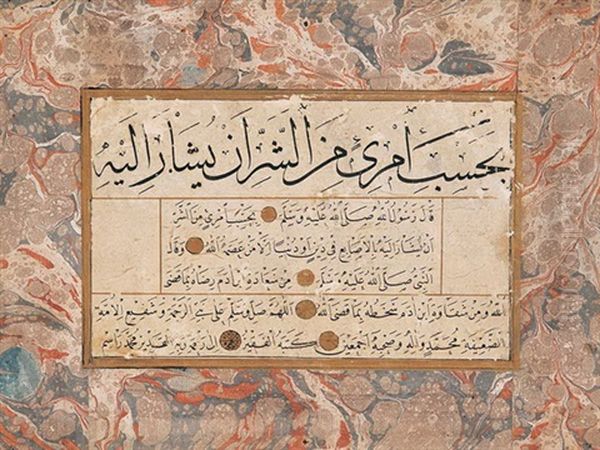 بحسب أمرئ من الشر أن يشار إليه
قال رسول الله صلى الله عليه وسلم بحسب امرئ من الشر
ان يشار اليه بالاصابع في دين او دنيا الا من عصمه الله وقال
النبي صلى الله عليه وسلم من سعادة ابن ادم رضاه بما قضى
الله ومن شقاوة ابن ادم سخطه بما قضى الله اللهم صل وسلم على نبي الرحمة وشفيع الامة
الضعيفة محمد واله وصحبه اجمعين كتبه الفقير محمد راسم